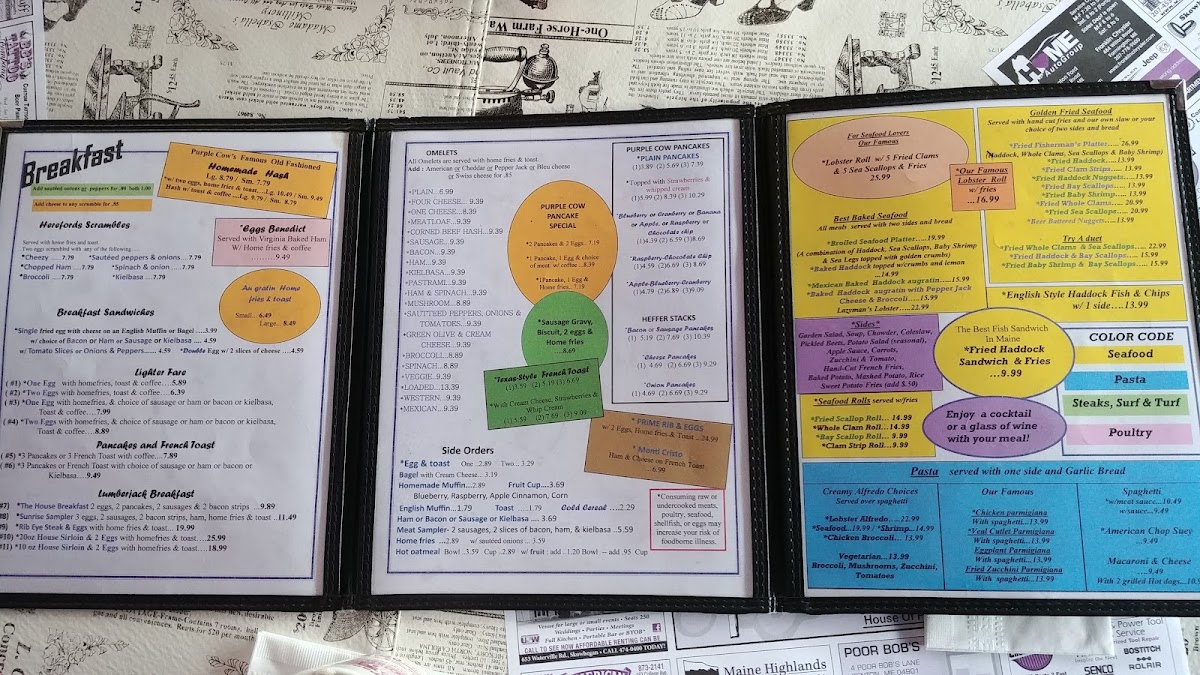 Breakfast
Add sautéed onion or peppers for .80 both 1.00
Add cheese to any scramble for .85
Purple Cow's Famous Old Fashioned
Homemade Hash
Lg. 8.79 / Sm. 7.79
*w/ two eggs, home fries & toast....Lg. 10.49 / Sm. 9.49
Hash w/ toast & coffee ....Lg. 9.79 / Sm. 8.79
Herefords Scrambles
Served with home fries and toast
Two eggs scrambled with any of the following.....
*Cheezy .....7.79 *Sautéed peppers & onions... 7.79
*Chopped Ham .....7.79 *Spinach & onion .....7.79
*Broccoli .....7.79 *Kielbasa .....7.79
*Eggs Benedict
Served with Virginia Baked Ham
W/ Home fries & coffee
..........9.49
Au gratin Home
fries & toast
Small... 6.49
Large... 8.49
Breakfast Sandwiches
*Single fried egg with cheese on an English Muffin or Bagel .....3.99
w/ choice of Bacon or Ham or Sausage or Kielbasa .... 4.59
w/ Tomato Slices or Onions & Peppers...... 4.59 *Double Egg w/ 2 slices of cheese ....4.59
Lighter Fare
( #1) *One Egg with homefries, toast & coffee....5.89
( #2) *Two Eggs with homefries, toast & coffee....6.39
( #3) *One Egg with homefries, & choice of sausage or ham or bacon or kielbasa,
Toast & coffee....7.99
(#4) *Two Eggs with homefries, & choice of sausage or ham or bacon or kielbasa,
Toast & coffee... 8.89
Pancakes and French Toast
( #5) *3 Pancakes or 3 French Toast with coffee....7.89
(#6) *3 Pancakes or French Toast with choice of sausage or ham or bacon or
Kielbasa....9.49
Lumberjack Breakfast
#7) *The House Breakfast 2 eggs, 2 pancakes, 2 sausages & 2 bacon strips ...9.89
#8) *Sunrise Sampler 3 eggs, 2 sausages, 2 bacon strips, ham, home fries & toast ...11.49
#9) *Rib Eye Steak & Eggs with home fries & toast... 19.99
#10) *20oz House Sirloin & 2 Eggs with homefries & toast....25.99
#11) *10 oz House Sirloin & 2 Eggs with homefries & toast....18.99
OMELETS
All Omelets are served with home fries & toast.
Add : American or Cheddar or Pepper Jack or Bleu cheese
or Swiss cheese for .85
*PLAIN...6.99
*FOUR CHEESE... 9.39
*ONE CHEESE...8.39
*MEATLOAF...9.39
*CORNED BEEF HASH...9.39
*SAUSAGE...9.39
*BACON...9.39
*HAM...9.39
*KIELBASA...9.39
*PASTRAMI...9.39
*HAM & SPINACH...9.39
*MUSHROOM...8.89
*SAUTTEED PEPPERS, ONIONS &
TOMATOES...9.39
*GREEN OLIVE & CREAM
CHEESE...9.39
*BROCCOLI...8.89
*SPINACH...8.89
*VEGGIE...9.39
*LOADED...13.39
*WESTERN...9.39
*MEXICAN...9.39
PURPLE COW
PANCAKE
SPECIAL
*2 Pancakes & 2 Eggs.. 7.19
*1 Pancake, 1 Egg & choice
of meat w/ coffee ..8.39
*1 Pancake, 1 Egg &
Home fries.. 7.19
*Sausage Gravy,
Biscuit, 2 eggs &
Home fries
....8.69
*Texas-Style French Toast
(1)3.59 (2) 5.19(3) 6.69
*With Cream Cheese, Strawberries &
Whip Cream
(1)5.59 (2)7.69 (3) 9.09
PURPLE COW PANCAKES
*PLAIN PANCAKES
(1)3.89 (2) 5.69 (3) 7.39
*Topped with Strawberries &
whipped cream
(1)5.99 (2) 8.39 (3) 10.29
*Blueberry or Cranberry or Banana
or Apple, or Raspberry or
Chocolate chip
(1)4.39 (2) 6.59 (3)8.69
*Raspberry-Chocolate Chip
(1)4.59 (2)6.69 (3) 8.69
*Apple-Blueberry-Cranberry
(1)4.79 (2)6.89 (3)9.09
HEFFER STACKS
*Bacon or Sausage Pancakes
(1) 5.19 (2)7.69 (3) 10.39
*Cheese Pancakes
(1) 4.69 (2)6.69 (3) 9.29
*Onion Pancakes
(1) 4.69 (2)6.69 (3) 9.29
* PRIME RIB & EGGS
w/ 2 Eggs, Home fries & Toast ....24.99
* Monti Cristo
Ham & Cheese on French Toast
....6.99
Side Orders
*Egg & toast One ..2.89 Two... 3.29
Bagel with Cream Cheese.. 3.19
Homemade Muffin...2.89 Fruit Cup....3.69
Blueberry, Raspberry, Apple Cinnamon, Corn
English Muffin...1.79 Toast .....1.79 Cold Cereal ....2.29
Ham or Bacon or Sausage or Kielbasa .... 3.69
Meat Sampler- 2 sausages, 2 slices of bacon, ham, & kielbasa ..5.59
Home fries ...2.89 w/ sautéed onions ... 3.59
Hot oatmeal Bowl ..3.59 Cup ..2.89 w/ fruit : add ..1.20 Bowl – add .95 Cup
*Consuming raw or
undercooked meats,
poultry, seafood,
shellfish, or eggs may
increase your risk of
foodborne illness.
For Seafood Lovers
Our Famous
*Lobster Roll w/ 5 Fried Clams
& 5 Sea Scallops & Fries
25.99
*Our Famous
Lobster Roll
w/ fries
...16.99
Best Baked Seafood
All meals served with two sides and bread
*Broiled Seafood Platter.....19.99
(A combination of Haddock, Sea Scallops, Baby Shrimp
& Sea Legs topped with golden crumbs)
*Baked Haddock topped w/crumbs and lemon
...14.99
*Mexican Baked Haddock augratin......15.99
*Baked Haddock augratin with Pepper Jack
Cheese & Broccoli......15.99
Lazyman's Lobster......22.99
Golden Fried Seafood
Served with hand cut fries and our own slaw or your
choice of two sides and bread
*Fried Fisherman's Platter..... 26.99
(Haddock, Whole Clams, Sea Scallops & Baby Shrimp)
*Fried Haddock.....13.99
*Fried Clam Strips.....13.99
*Fried Haddock Nuggets.....13.99
*Fried Bay Scallops..... 13.99
*Fried Baby Shrimp..... 13.99
*Fried Whole Clams..... 20.99
*Fried Sea Scallops... 20.99
*Beer Battered Nuggets....13.99
Try A duet
*Fried Whole Clams & Sea Scallops..... 22.99
*Fried Haddock & Bay Scallops..... 15.99
*Fried Baby Shrimp & Bay Scallops..... 15.99
*English Style Haddock Fish & Chips
w/ 1 side....13.99
*Sides*
Garden Salad, Soup, Chowder, Coleslaw,
Pickled Beets, Potato Salad (seasonal),
Apple Sauce, Carrots,
Zucchini & Tomato,
Hand-Cut French Fries,
Baked Potato, Mashed Potato, Rice
Sweet Potato Fries (add $.50)
The Best Fish Sandwich
In Maine
*Fried Haddock
Sandwich & Fries
...9.99
*Seafood Rolls served w/fries
*Fried Scallop Roll... 14.99
*Whole Clam Roll....14.99
*Bay Scallop Roll... 9.99
*Clam Strip Roll... 9.99
Enjoy a cocktail
or a glass of wine
with your meal!
COLOR CODE
Seafood
Pasta
Steaks, Surf & Turf
Poultry
Pasta served with one side and Garlic Bread
Creamy Alfredo Choices
Served over spaghetti
*Lobster Alfredo.....22.99
*Seafood...19.99 / *Shrimp...14.99
*Chicken Broccoli... 13.99
Vegetarian...13.99
Broccoli, Mushrooms, Zucchini,
Tomatoes
Our Famous
*Chicken parmigiana
With spaghetti...13.99
*Veal Cutlet Parmigiana
With spaghetti...13.99
Eggplant Parmigiana
With spaghetti...13.99
Fried Zucchini Parmigiana
With spaghetti...13.99
Spaghetti
*w/meat sauce...10.49
w/sauce...9.49
*American Chop Suey
...9.49
Macaroni & Cheese
.....9.49
With 2 grilled Hot dogs...10.
One-Horse Farm Wa
Madame Isabelle's
Millinery
HOME
AutoGroup
Jeep
Venue for large or small events • Seats 250
Weddings • Parties • Meetings
Full Kitchen • Portable Bar or BYOB*
CALL TO SEE HOW AFFORDABLE RENTING CAN BE
653 Waterville Rd., Skowhegan • CALL 474-0400 TODAY!
House Of
873-2141
Maine Highlands
POOR BOB'S
4 POOR BOB'S LANE
BENTON, ME 04901
Power Tool
Service
BOSTITCH
ROLAIR
SENCO